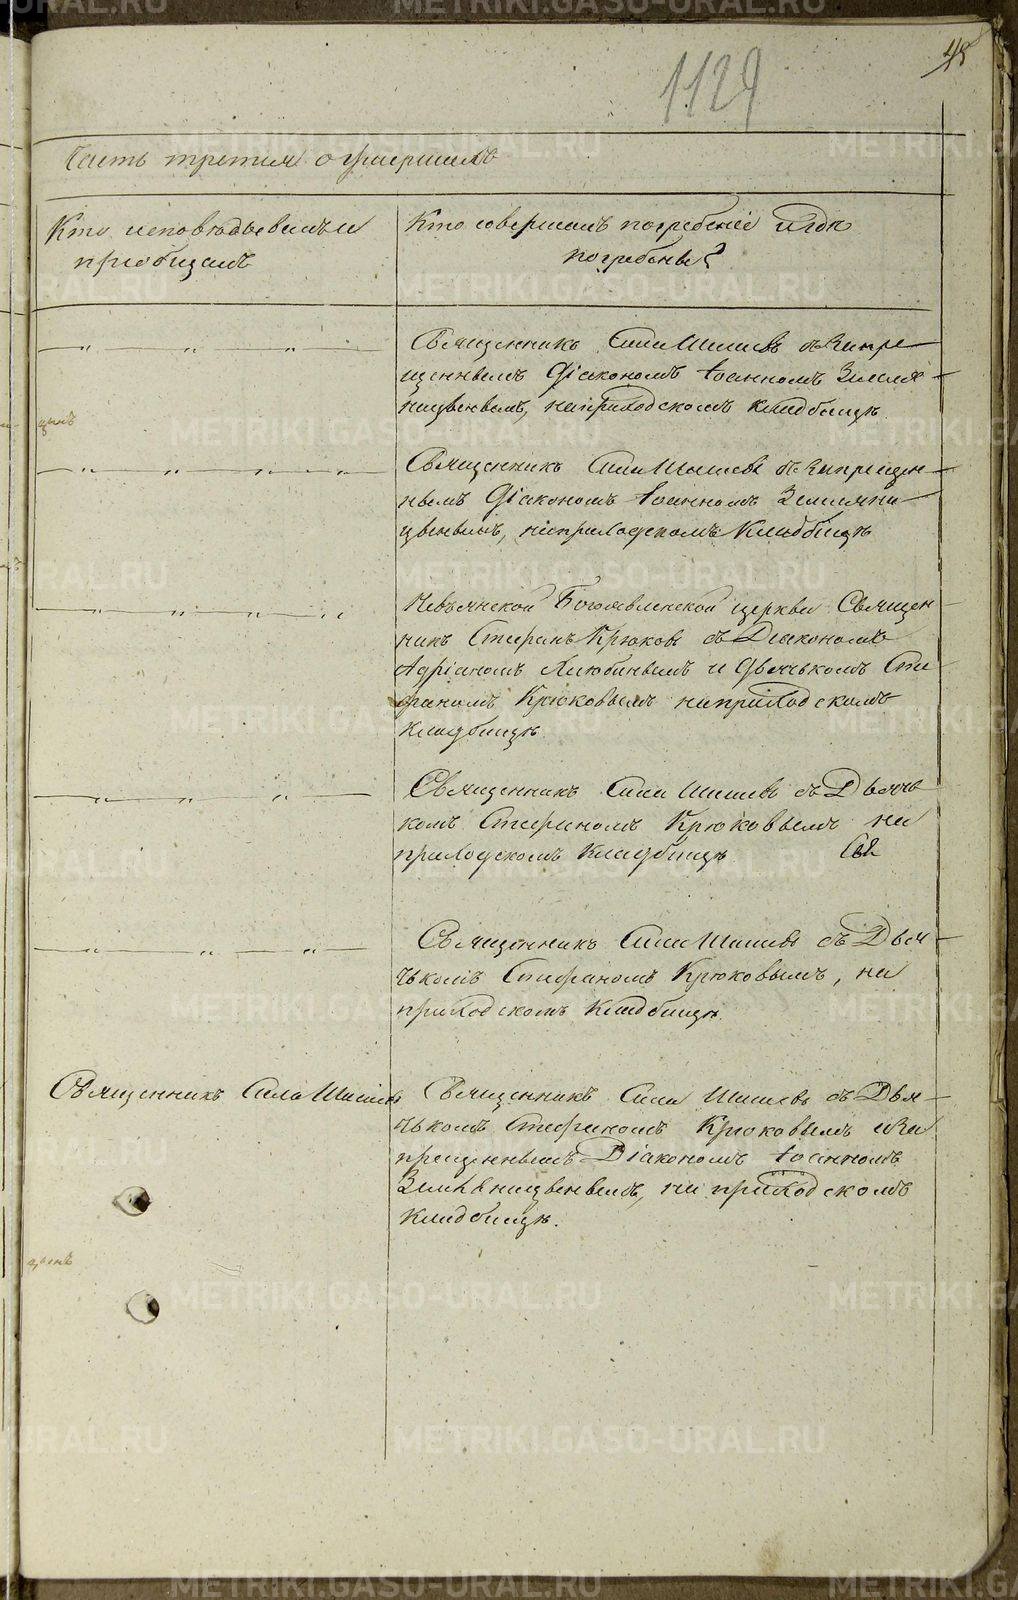 48
1129
Часть третья о умершихъ
Кто исповѣдывалъ и
приобщалъ
Кто совершалъ погребеніе и гдѣ
погребены?
Священникъ Сила Шишевъ съ Запре-
щеннымъ Діакономъ Іоанномъ Земля-
ницынымъ, на приходскомъ кладбищѣ
Священникъ Сила Шишевъ съ Запрещен-
нымъ Діакономъ Іоанномъ Земляни-
цынымъ, на приходскомъ Кладбищѣ
Невьянской Богоявленской церкви Священ-
никъ Стефанъ Крюковъ съ Діакономъ
Адріаномъ и Дьячькомъ Сте-
фаномъ Крюковымъ на приходскомъ
кладбищѣ
Священникъ Сила Шишевъ съ Дьячь
комъ Стефаномъ Крюковымъ на
приходскомъ кладбищѣ Свя
Священникъ Сила Шишевъ съ Дья-
чькомъ Стефаномъ Крюковымъ, на
приходскомъ кладбищѣ
Священникъ Сила Шишевъ
Священникъ Сила Шишевъ съ Дья-
чькомъ Стефаномъ Крюковымъ и За
прещеннымъ Діакономъ Іоанномъ
Земляницынымъ, на приходскомъ
кладбищѣ.
METRIKI.GASO-URAL.RU